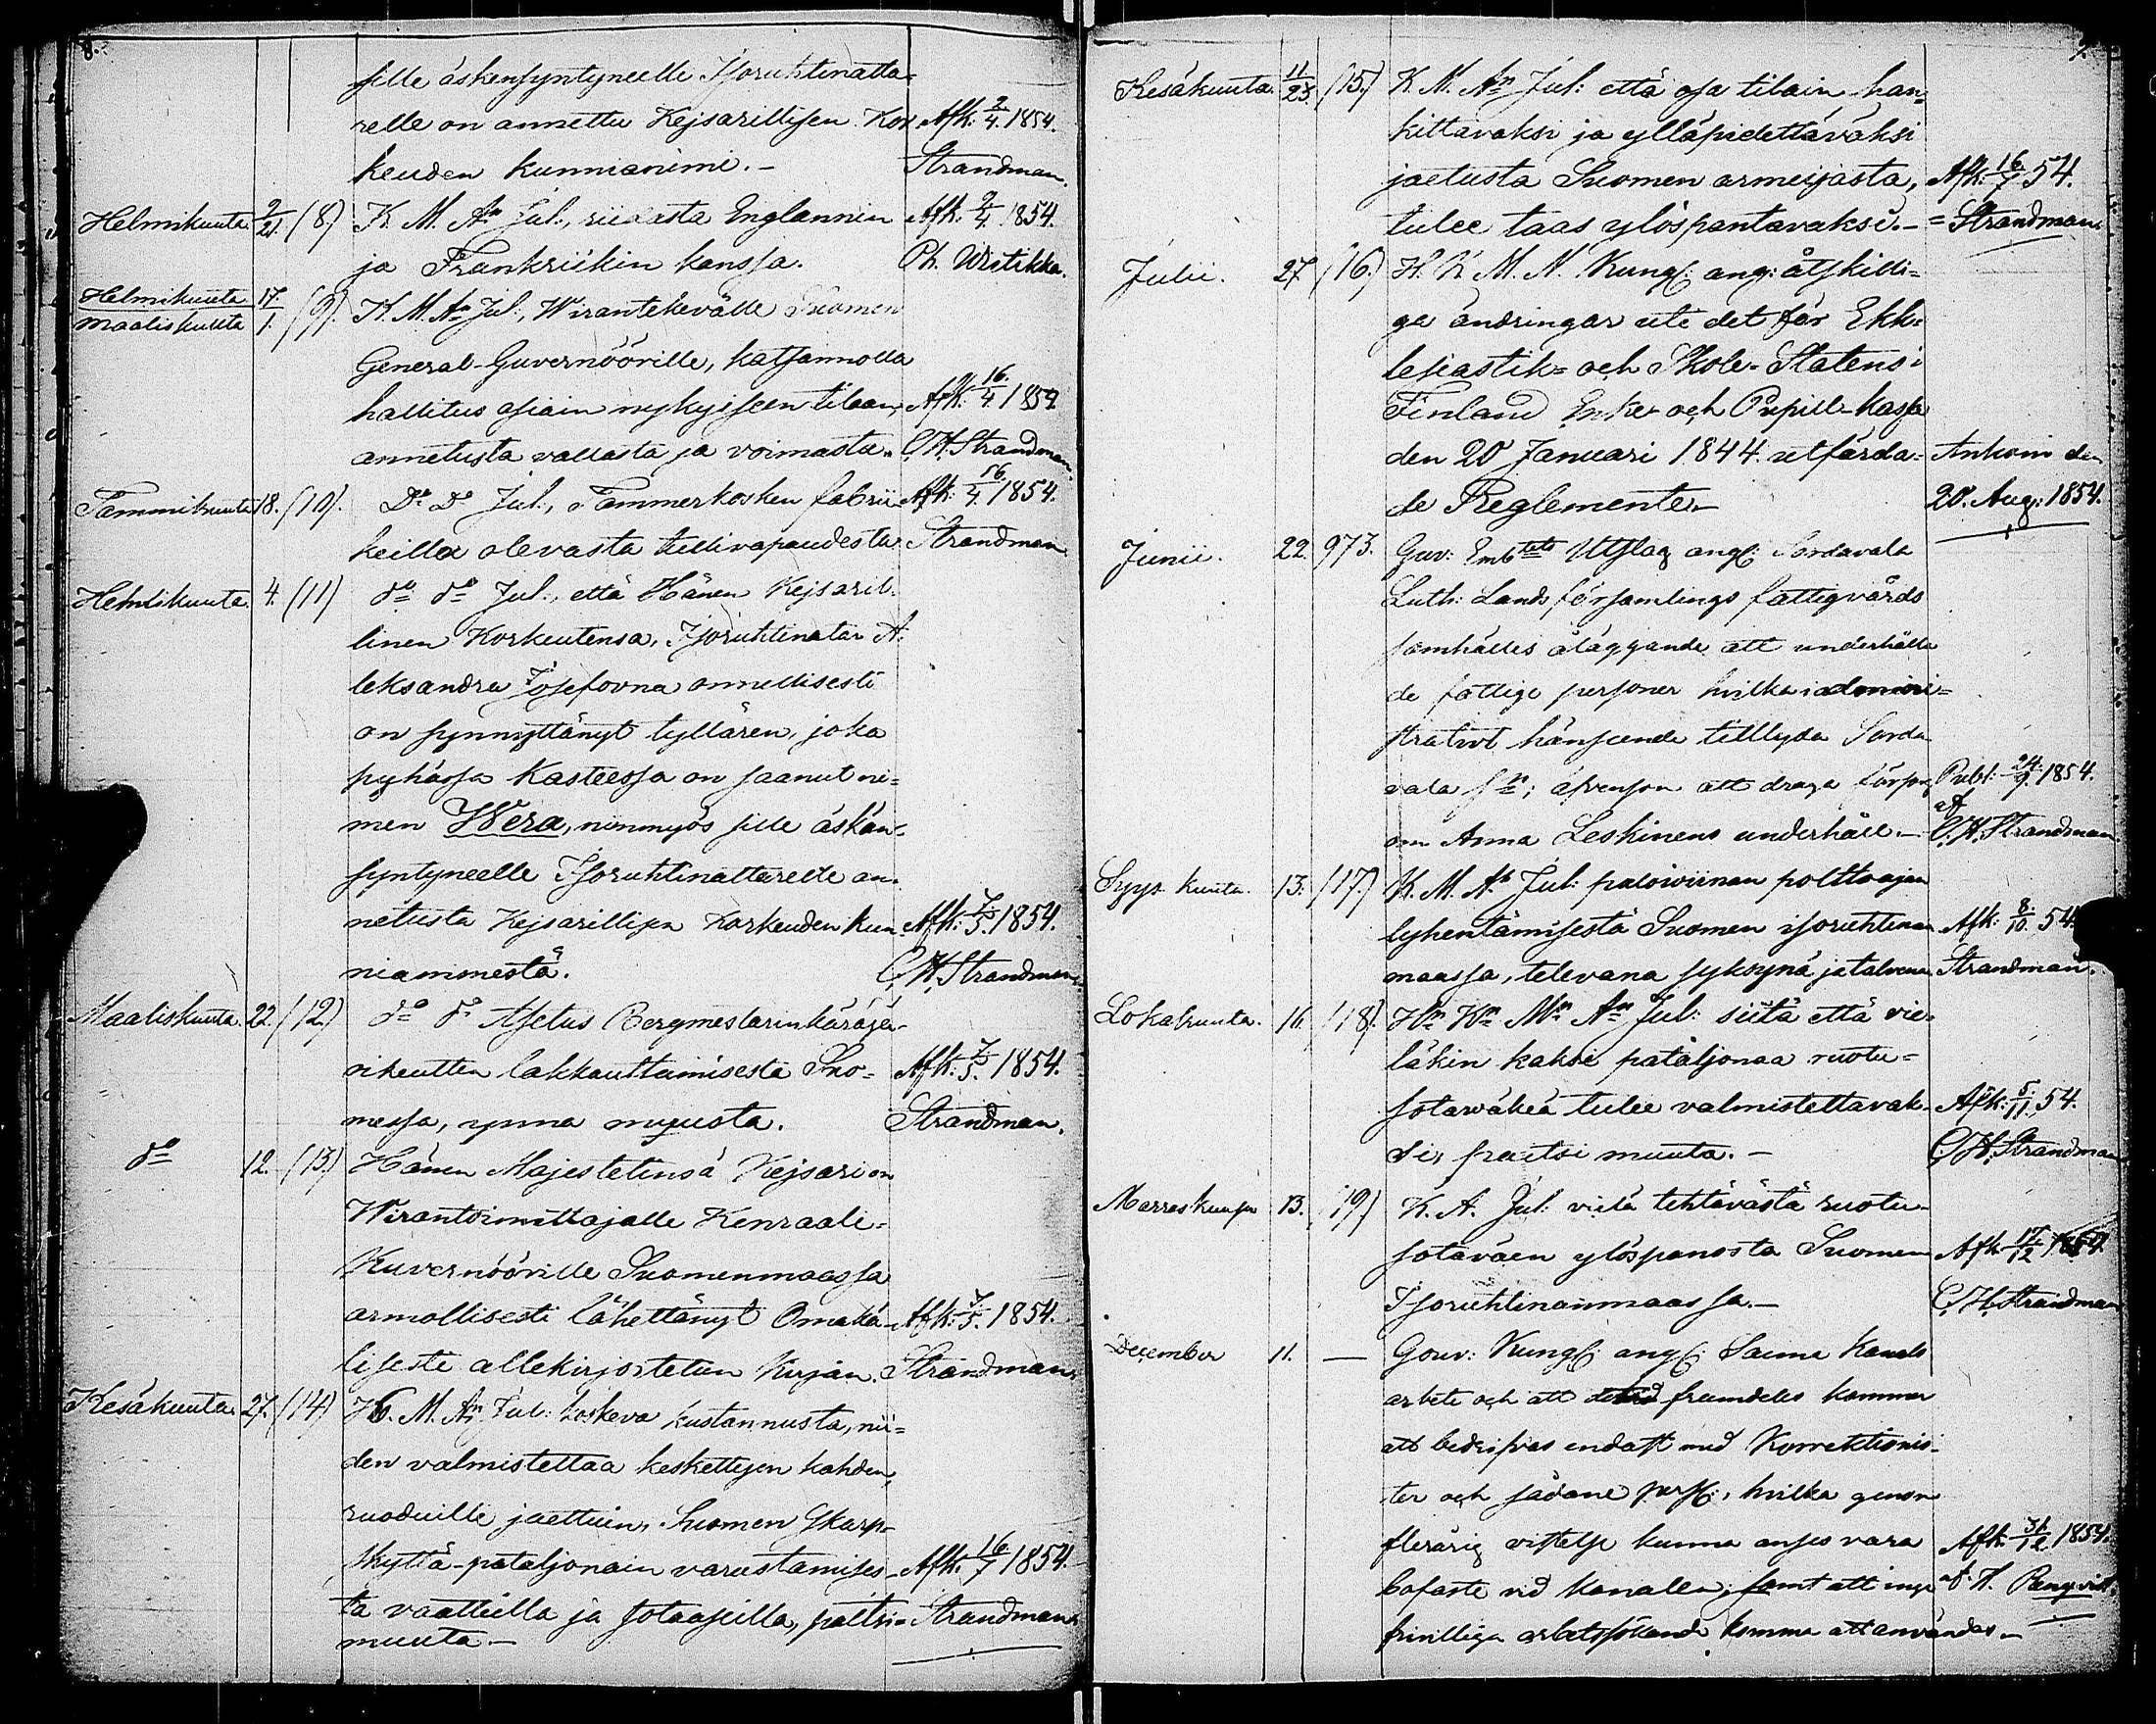 8.
sille äskensyntyneelle Isoruhtinatta-
relle on annettu Kejsarillisen Kor Afk: 2/4. 1854.
keuden kunnianimi.- Strandman.
Helmikuuta 9/21. (8) K. M. An Jul:, riidasta Englannin Afk. 2/4. 1854.
ja Frankriikin kanssa. Ph.
Helmikuuta 17/ maaliskuuta 1. (9). K. M. An Jul:, Wirantekevälle Suomen
General-Guvernöörille, katsannolla
hallitus asiain nykyiseen tilaan, Afk: 16./4. 1854
annetusta vallasta ja voimasta. C. H. Strandman.
Tammikuuta 18. (10). Do Do Jul:, Tammerkosken fabrii- Afk: 16/4 1854.
keilla olevasta tullivapaudesta Strandman
Helmikuuta. 4. (11) do do Jul:, että Hänen Kejsaril-
linen Korkeutensa, Isoruhtinatar A-
leksandra Josefovna onnellisesti
on synnyttänyt tyttären, joka
pyhässä Kasteessa on saanut ni-
men Wera, niinmyös sille äskän-
syntyneelle Isoruhtinattarelle an-
netusta Kejsarillisen Korkeuden kun- Afk: 7./5. 1854.
nianimestä. C. H. Strandman.
Maaliskuuta. 22. (12) do do Asetus Bergmestarinkäräjä-
oikeutten lakkauttamisesta Suo- Afk: 7/5. 1854.
messa, ynnä muusta. Strandman.
do 12. (13.) Hänen Majestetinsä Kejsari on
Wirantoimittajalle Kenraali-
Kuvernöörille Suomenmaassa
armollisesti lähettänyt Omakä- Afk: 7/5. 1854.
tisesti allekirjoitetun Kirjan. Strandman.
Kesäkuuta. 27. (14) K. M. An Jul: koskeva kustannusta, nii-
den valmistettaa keskettysen kahden,
ruoduille jaettuin, Suomen Skarp-
skyttä-pataljonain varustamises- Afk. 16/7 1854.
ta vaatteilla ja sotaaseilla, paitsi Strandman.
muuta-
Kesäkuuta. 11/23. (15.) K. M. An Jul: että osa tilain han-
kittavaksi ja ylläpidettäväksi
jaetusta Suomen armeijasta, Afk: 16/7 54.
tulee taas ylöspantavaksi.- = Strandman.
Julii. 27. (16.) H. K. M. N. Kungs: ang: åtskilli-
ga ändringar uti det för Ekk-
lesiastik- och Skole-Staten i
Finland Enke- och Pupill-kassa
den 20 Januari 1844 utfärda- Ankom den
de Reglemente.- 20. Aug: 1854.
Junii. 22. 973. Guv: Embtets Utslag angs: Sordavala
Luth: Lands församlings fattigvårds
samhälles åläggande att underhålla
de fattige personer hvilka i admini-
strativt hänseende tillyda Sorda-
vala sn; äfvensom att draga försorg Publ: 24./9. 1854.
om Anna Leskinens underhåll.- af C. H. Strandman
Syys kuuta. 13. (17.) K. M. An Jul: paloviinan polttoajan
lyhentämisestä Suomen isoruhtinan Afk: 8/10. 54.
maassa, tulevana syksynä ja talvena Strandman.
Lokakuuta. 16. (18). Hn Kn Mn An Jul: siitä että vie-
läkin kaksi pataljonaa ruotu-
sotaväkeä tulee valmistettavak- Afk: 5./11. 54.
si, paitsi muuta.- C. H. Strandman
Marraskuuta 13. (19) K. A. Jul: vielä tehtävästä ruotu-
sotaväen ylöspanosta Suomen Afk 17/12 1854.
Isoruhtinanmaassa.- C. H. Strandman
December 11. — Gouv: Kungs: angs: Saima Kanals
arbete och att detta framdeles kommer
att bedrifvas endast med Korrektionis-
ter och sådane pers:, hvilka genom
flerårig vistelse kunna anses vara Afk. 31/12 1854.
bofaste vid kanalen, samt att inga af: H.
frivilliga arbetssökande komma att användas.-